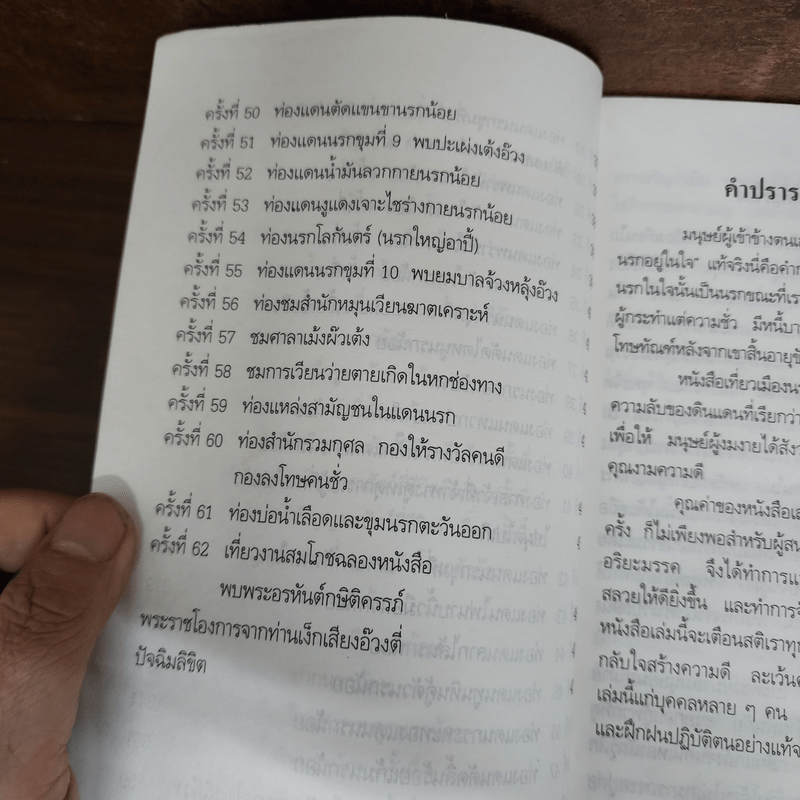 ครั้งที่ 50 ท่องแดนตัดแขนขานรกน้อย
ครั้งที่ 51 ท่องแดนนรกขุมที่ 9 พบปะเผ่งเต้งอ๊วง
ครั้งที่ 52 ท่องแดนน้ำมันลวกกายนรกน้อย
ครั้งที่ 53 ท่องแดนงูแดงเจาะไชร่างกายนรกน้อย
ครั้งที่ 54 ท่องนรกโลกันตร์ (นรกใหญ่อาปี้)
ครั้งที่ 55 ท่องแดนนรกขุมที่ 10 พบยมบาลจ้วงหลุ้งอ๊วง
ครั้งที่ 56 ท่องชมสำนักหมุนเวียนฆาตเคราะห์
ครั้งที่ 57 ชมศาลาเม้งผ๊วเต้ง
ครั้งที่ 58 ชมการเวียนว่ายตายเกิดในหกช่องทาง
ครั้งที่ 59 ท่องแหล่งสามัญชนในแดนนรก
ครั้งที่ 60 ท่องสำนักรวมกุศล กองให้รางวัลคนดี
กองลงโทษคนชั่ว
ครั้งที่ 61 ท่องบ่อน้ำเลือดและขุมนรกตะวันออก
ครั้งที่ 62 เที่ยวงานสมโภชฉลองหนังสือ
พบพระอรหันต์กษิติครรภ์
พระราชโองการจากท่านเง็กเสียงอ๊วงตี่
ปัจฉิมลิขิต
คำปราร
มนุษย์ผู้เข้าข้างตนเอ
นรกอยู่ในใจ" แท้จริงนี่คือคำก
นรกในใจนั้นเป็นนรกขณะที่เรา
ผู้กระทำแต่ความชั่ว มีหนี้บา
โทษทัณฑ์หลังจากเขาสิ้นอายุขั
หนังสือเที่ยวเมืองนร
ความลับของดินแดนที่เรียกว่า
เพื่อให้ มนุษย์ผู้งมงายได้สังว
คุณงามความดี
คุณค่าของหนังสือเล
ครั้ง ก็ไม่เพียงพอสำหรับผู้สน
อริยะมรรค จึงได้ทำการแ
สลวยให้ดียิ่งขึ้น และทำการจั
หนังสือเล่มนี้จะเตือนสติเราทุก
กลับใจสร้างความดี ละเว้นค
เล่มนี้แก่บุคคลหลาย ๆ คน
และฝึกฝนปฏิบัติตนอย่างแท้จ